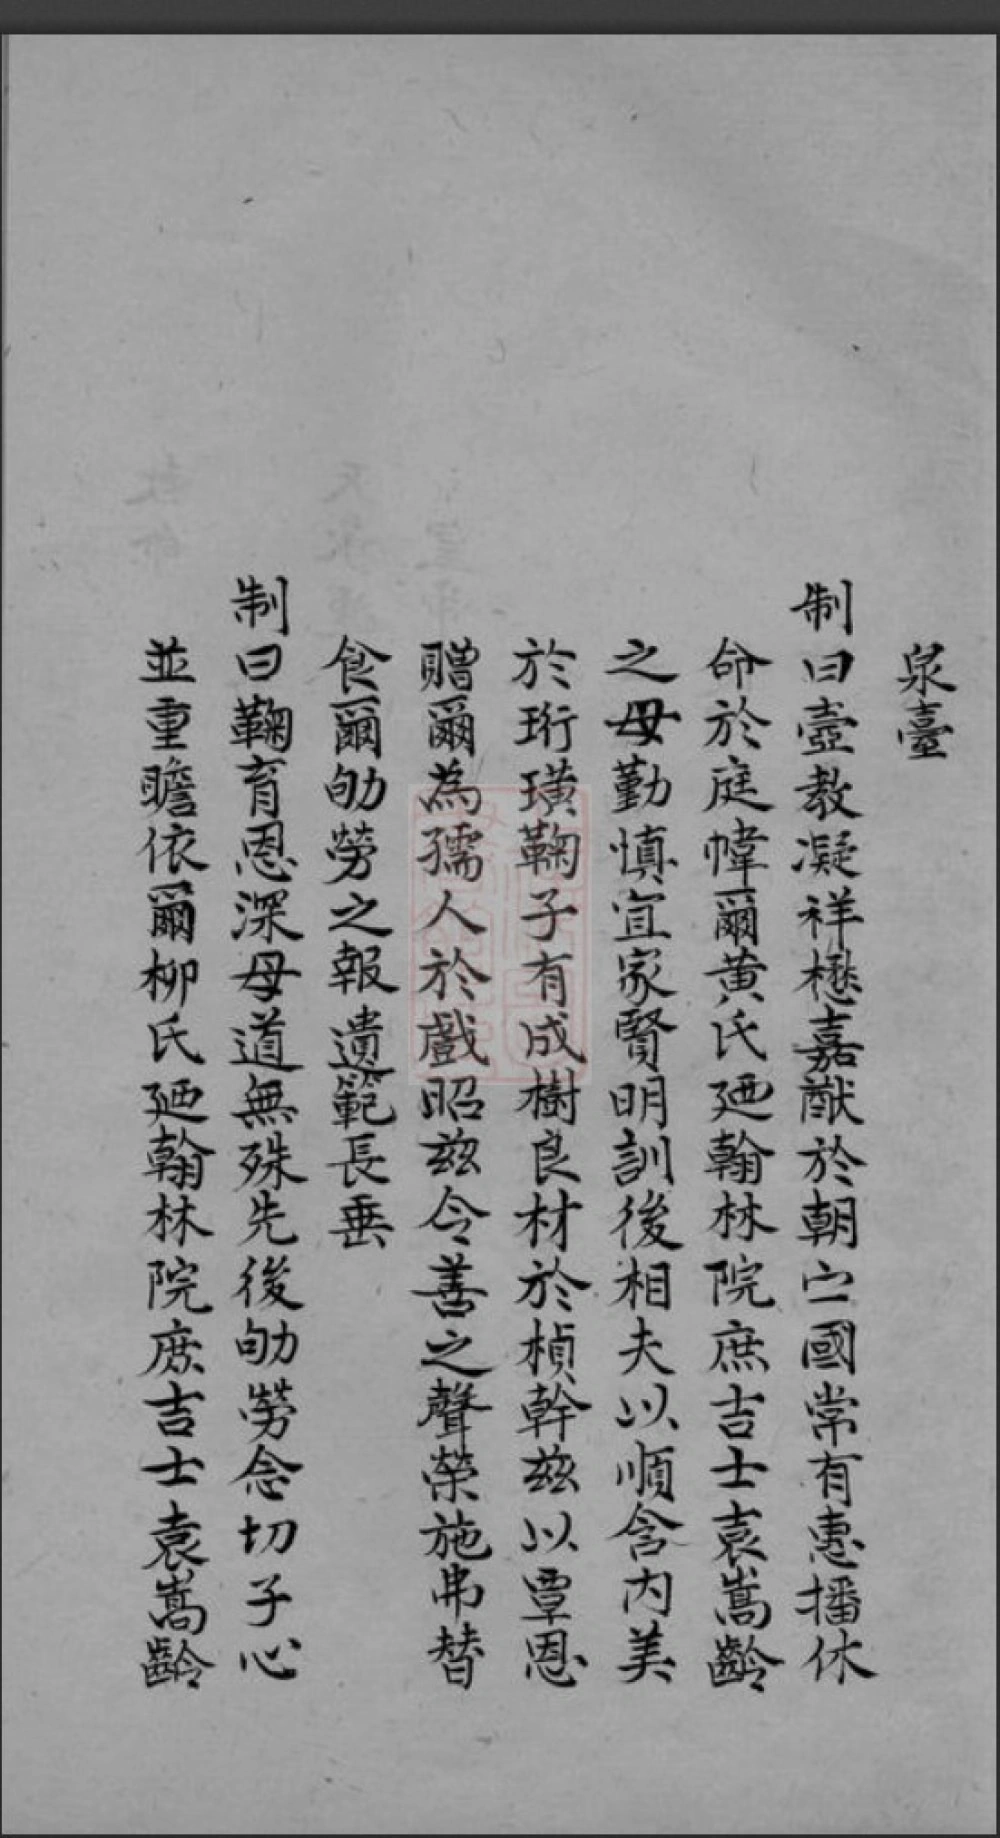 泉臺
制曰壼教凝祥懋嘉猷於朝宁國常有惠播休
命於庭幃爾黃氏廼翰林院庶吉士袁嵩齡
之母勤慎宜家賢明訓後相夫以順含內美
於珩璜鞠子有成樹良材於楨幹兹以覃恩
贈爾為孺人於戲昭兹令善之聲榮施弗替
食爾劬勞之報遺範長垂
制曰鞠育恩深母道無殊先後劬勞念切子心
並重瞻依爾柳氏廼翰林院庶吉士袁嵩齡